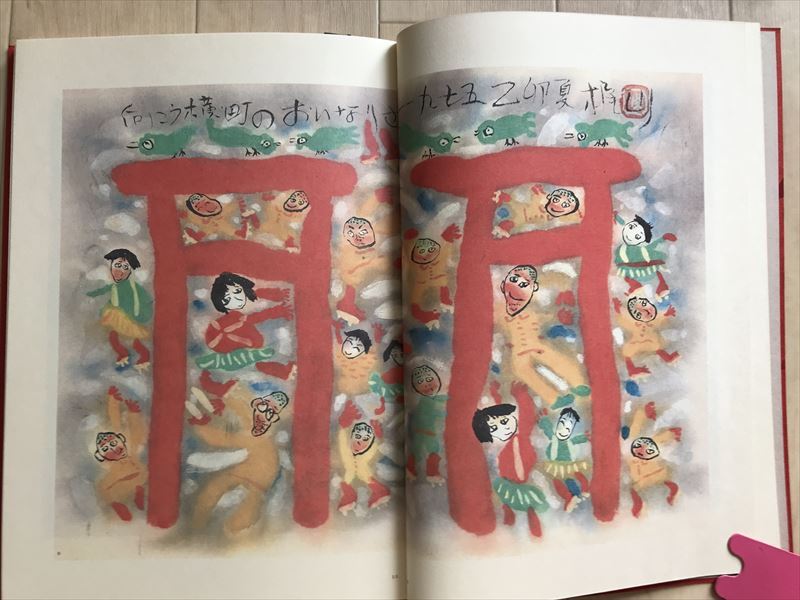 向こう横町のおいなりさ一九七五乙卯夏